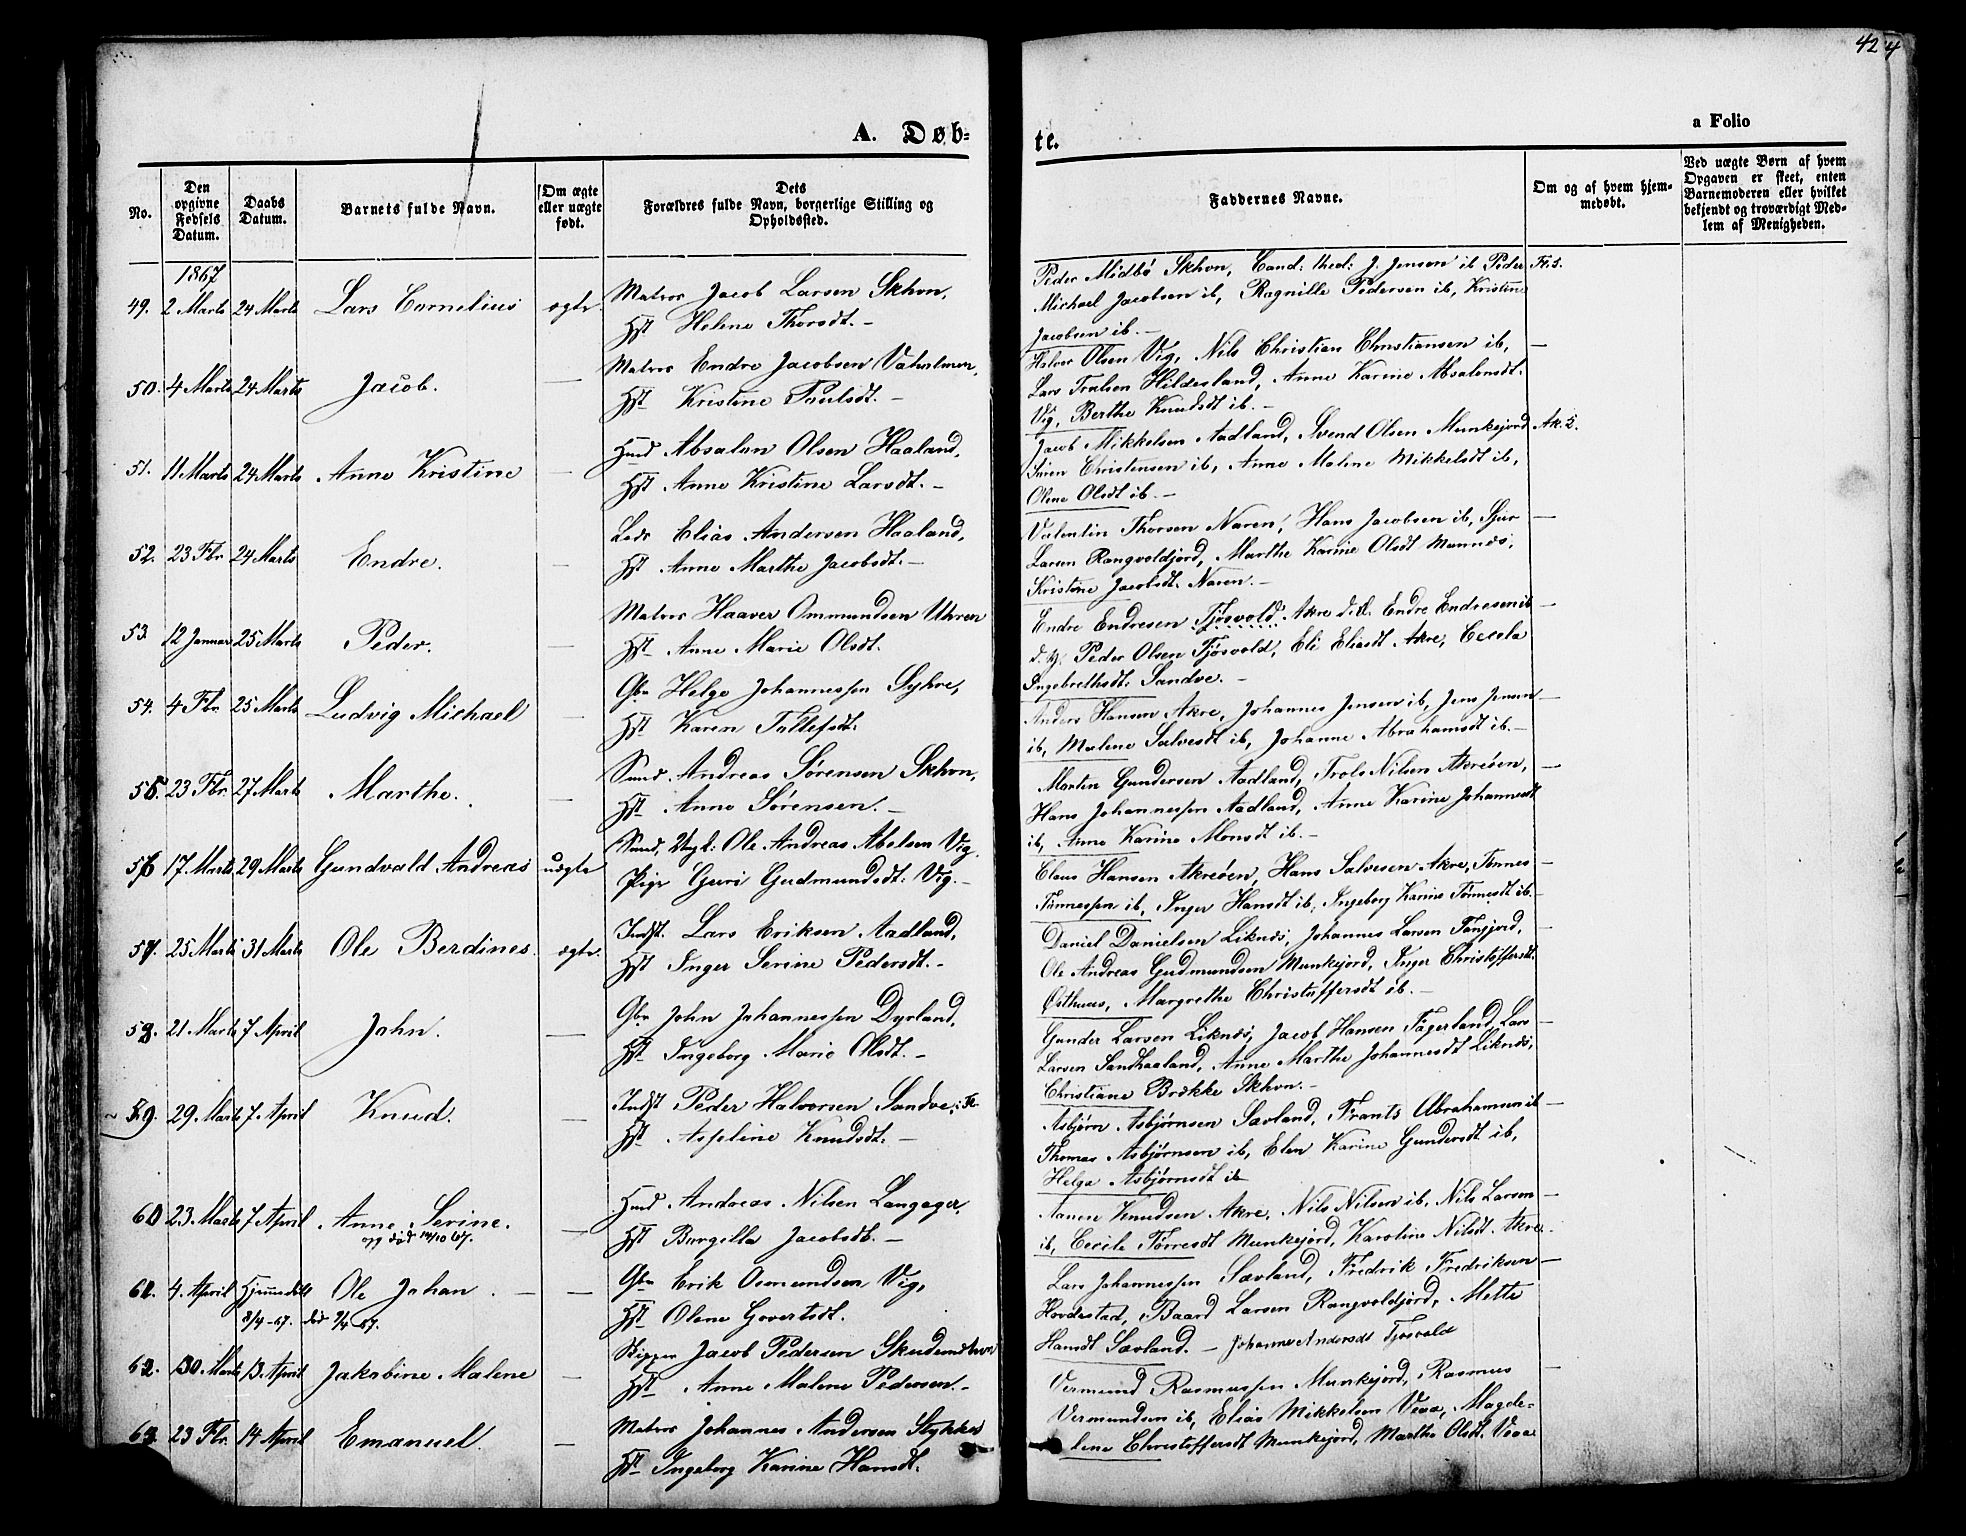 424
A. Døb-
te.
a Folio
No.
Den opgivne Fødsels Datum.
Daabs Datum.
Barnets fulde Navn.
Om ægte eller uægte født.
Dets Forældres fulde Navn, borgerlige Stilling og Opholdssted.
Faddernes Navne.
Om og af hvem hjemmedøbt.
Ved uægte Børn af hvem Opgaven er skeet, enten Barnemoderen eller hvilket bekjendt og troværdigt Medlem af Menigheden.
1867
49. 2 Marts 24 Marts Lars Cornelius ægte. Matros Jacob Larsen Skhvn,
Hst Helene Thorsdt. –
Peder Midbö Skhvn, Cand: theol: J. Jensen ib Peder
Michael Jacobsen ib, Ragnille Pedersen ib, Kristine
Jacobsen ib. –
50. 4 Marts 24 Marts Jacob. — Matros Endre Jacobsen
Hst Kristine Paulsdt. –
Halvor Olsen Vig, Nils Christian Christiansen ib, —
Lars Trulsen Hildesland, Anne Karine Absalonsdt.
Vig, Berthe Knudsdt ib. –
51. 11 Marts 24 Marts Anne Kristine — Hmd Absalon Olsen Haaland,
Hst Anne Kristine Larsdt. –
Jacob Mikkelsen Aadland, Svend Olsen Munkejord Ak. 2.
Sören Christensen ib, Anne Malene Mikkelsdt ib,
Olene Olsdt ib. –
52. 23 Fbr. 24 Marts Endre. — Elias Andersen Haaland,
Hst Anne Marthe Jacobsdt. –
Valentin Thorsen Naren, Hans Jacobsen ib, Sjur —
Larsen Rangvoldjord, Marthe Karine Olsdt Munnæs,
Kristine Jacobsdt. Naren. –
53. 12 Januar 25 Marts Peder. Matros Haaver Ommundsen Uhren
Hst Anne Marie Olsdt.
Endre Endresen Tjösvold Akre d.æ. Endre Endresen ib —
d. y. Peder Olsen Tjösvold, Eli Eliasdt Akre, Cecela
Ingebrethsdt. Sandve. –
54. 4 Fbr. 25 Marts Ludvig Michael — Gbr Helge Johannessen Syhre,
Hst Karen Tollefsdt.
Anders Hansen Akre, Johannes Jensen ib, Jens Jensen —
ib, Malene Salvesdt ib, Johanne Abrahamsdt ib. –
55. 23 Fbr. 27 Marts Marthe. — Smd. Andreas Sörensen Skhvn,
Hst Anne Sörensen. –
Martin Gundersen Aadland, Trols Nilsen Akreöen, —
Hans Johannessen Aadland, Anne Karine Johannesdt
ib, Anne Karine Monsdt ib. –
56. 17. Marts 29 Marts Gundvald Andreas uægte Smd, Ungk: Ole Andreas Abelsen Vig.
Pige Guri Gudmundsdt: Vig. –
Claus Hansen Akreöen, Hans Salvesen Akre, Tönnes —
Tönnessen ib, Inger Hansdt ib, Ingeborg Karine Tönnesdt ib. –
57. 25 Marts 31 Marts Ole Berdines. ægte. Indst. Lars Eriksen Aadland,
Hst Inger Serine Pedersdt. –
Daniel Danielsen Liknæs, Johannes Larsen Tangjord, —
Ole Andreas Gudmundsen Munkejord, Inger Christoffersdt.
Östhuus, Margrethe Christoffersdt ib. –
58. 21 Marts 7 April John. — Gbr John Johannessen Dyrland,
Hst Ingeborg Marie Olsdt. –
Gunder Larsen Liknæs, Jacob Hansen Fagerland, Lars —
Larsen Sandhaaland, Anne Marthe Johannesdt Liknæs,
Christiane Brække Skhvn. –
59. 29. Marts 7 April Knud. — Indst Peder Halvorsen Sandve,
Hst Asseline Knudsdt. –
Asbjörn Asbjörnsen Sævland, Frants Abrahamsen ib —
Thomas Asbjörnsen ib, Elen Karine Gundersdt ib,
Helga Asbjörnsdt ib
60 23. Marts 7 April Anne Serine. — Hmd Andreas Nilsen Langager,
og död 14/10 67.
Hst Borgilla Jacobsdt. –
Knudsen Akre, Nils Nilsen ib, Nils Larsen —
ib, Cecile Torresdt Munkejord, Karoline Nilsdt. Akre. –
61. 4. April Hjemmedöbt Ole Johan. — — Gbr Erik Osmundsen Vig,
8/4-67. död 9/4 67. Hst Olene Govertsdt.
Lars Johannessen Sævland, Fredrik Fredriksen —
Hovdestad, Baard Larsen Rangvoldjord, Mette
Hansdt Sævland. – Johanne Andersdt Tjosvold
62. 30. Marts 13. April Jakobine Malene — Skipper Jacob Pedersen Skudeneshavn
Hst Anne Malene Pedersen. –
Vermund Rasmussen Munkejord, Rasmus —
Vermundsen ib, Elias Mikkelsen Veaa, Magde-
lene Christoffersdt Munkejord, Marthe Olsdt. Veaa
63. 23 Fbr. 14 April Emanuel. — Matros Johannes Andersen Stykket
Hst Ingeborg Karine Hansdt.